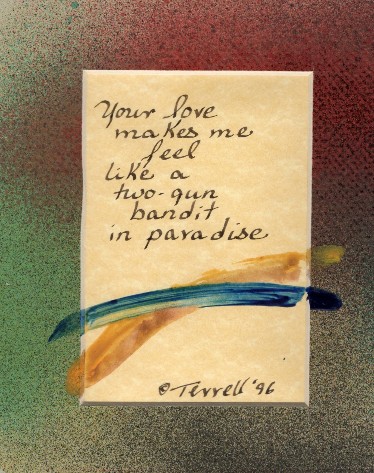 Your love
makes me
feel
like a
two-gun
bandit
in paradise
© Terrell '96